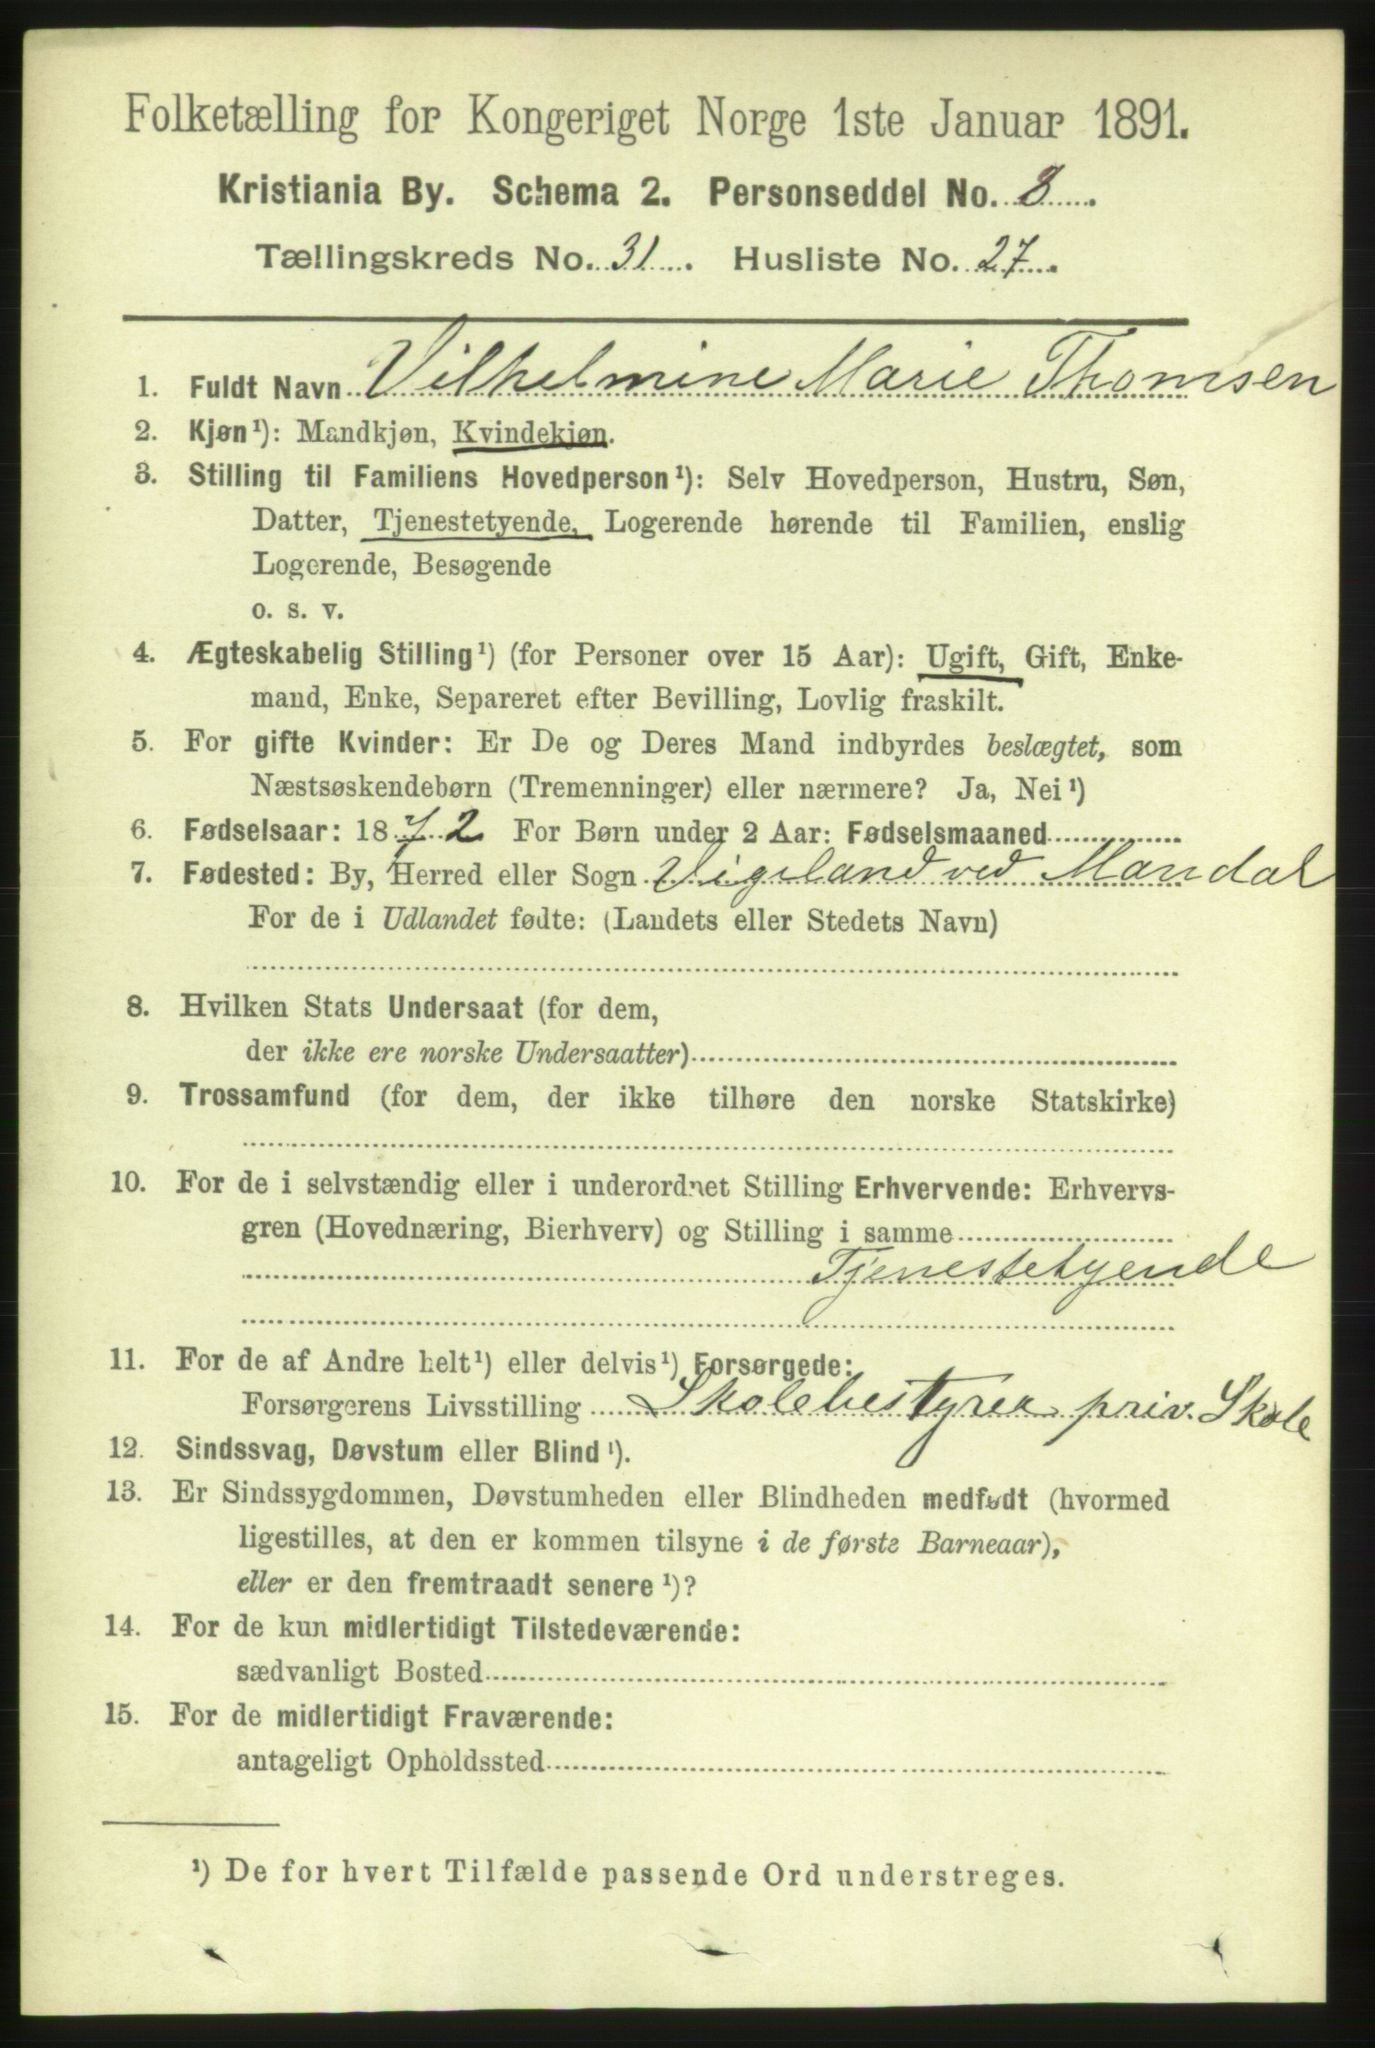 Folketælling for Kongeriget Norge 1ste Januar 1891.
Kristiania By. Schema 2. Personseddel No. 8.
Tællingskreds No. 31. Husliste No. 27.
1. Fuldt Navn Vilhelmine Marie Thomsen
2. Kjøn¹): Mandkjøn, Kvindekjøn.
3. Stilling til Familiens Hovedperson¹): Selv Hovedperson, Hustru, Søn,
Datter, Tjenestetyende, Logerende hørende til Familien, enslig
Logerende, Besøgende
o. s. v.
4. Ægteskabelig Stilling¹) (for Personer over 15 Aar): Ugift, Gift, Enke-
mand, Enke, Separeret efter Bevilling, Lovlig fraskilt.
5. For gifte Kvinder: Er De og Deres Mand indbyrdes beslægtet, som
Næstsøskendebørn (Tremenninger) eller nærmere? Ja, Nei¹)
6. Fødselsaar: 1872 For Børn under 2 Aar: Fødselsmaaned
7. Fødested: By, Herred eller Sogn Vigeland ved Mandal
For de i Udlandet fødte: (Landets eller Stedets Navn)
8. Hvilken Stats Undersaat (for dem,
der ikke ere norske Undersaatter)
9. Trossamfund (for dem, der ikke tilhøre den norske Statskirke)
10. For de i selvstændig eller i underordnet Stilling Erhvervende: Erhvervs-
gren (Hovednæring, Bierhverv) og Stilling i samme
Tjenestetyende
11. For de af Andre helt¹) eller delvis¹) Forsørgede:
Forsørgerens Livsstilling Skolebestyrer priv. Skole
12. Sindssvag, Døvstum eller Blind¹).
13. Er Sindssygdommen, Døvstumheden eller Blindheden medfødt (hvormed
ligestilles, at den er kommen tilsyne i de første Barneaar),
eller er den fremtraadt senere¹)?
14. For de kun midlertidigt Tilstedeværende:
sædvanligt Bosted
15. For de midlertidigt Fraværende:
antageligt Opholdssted
¹) De for hvert Tilfælde passende Ord understreges.